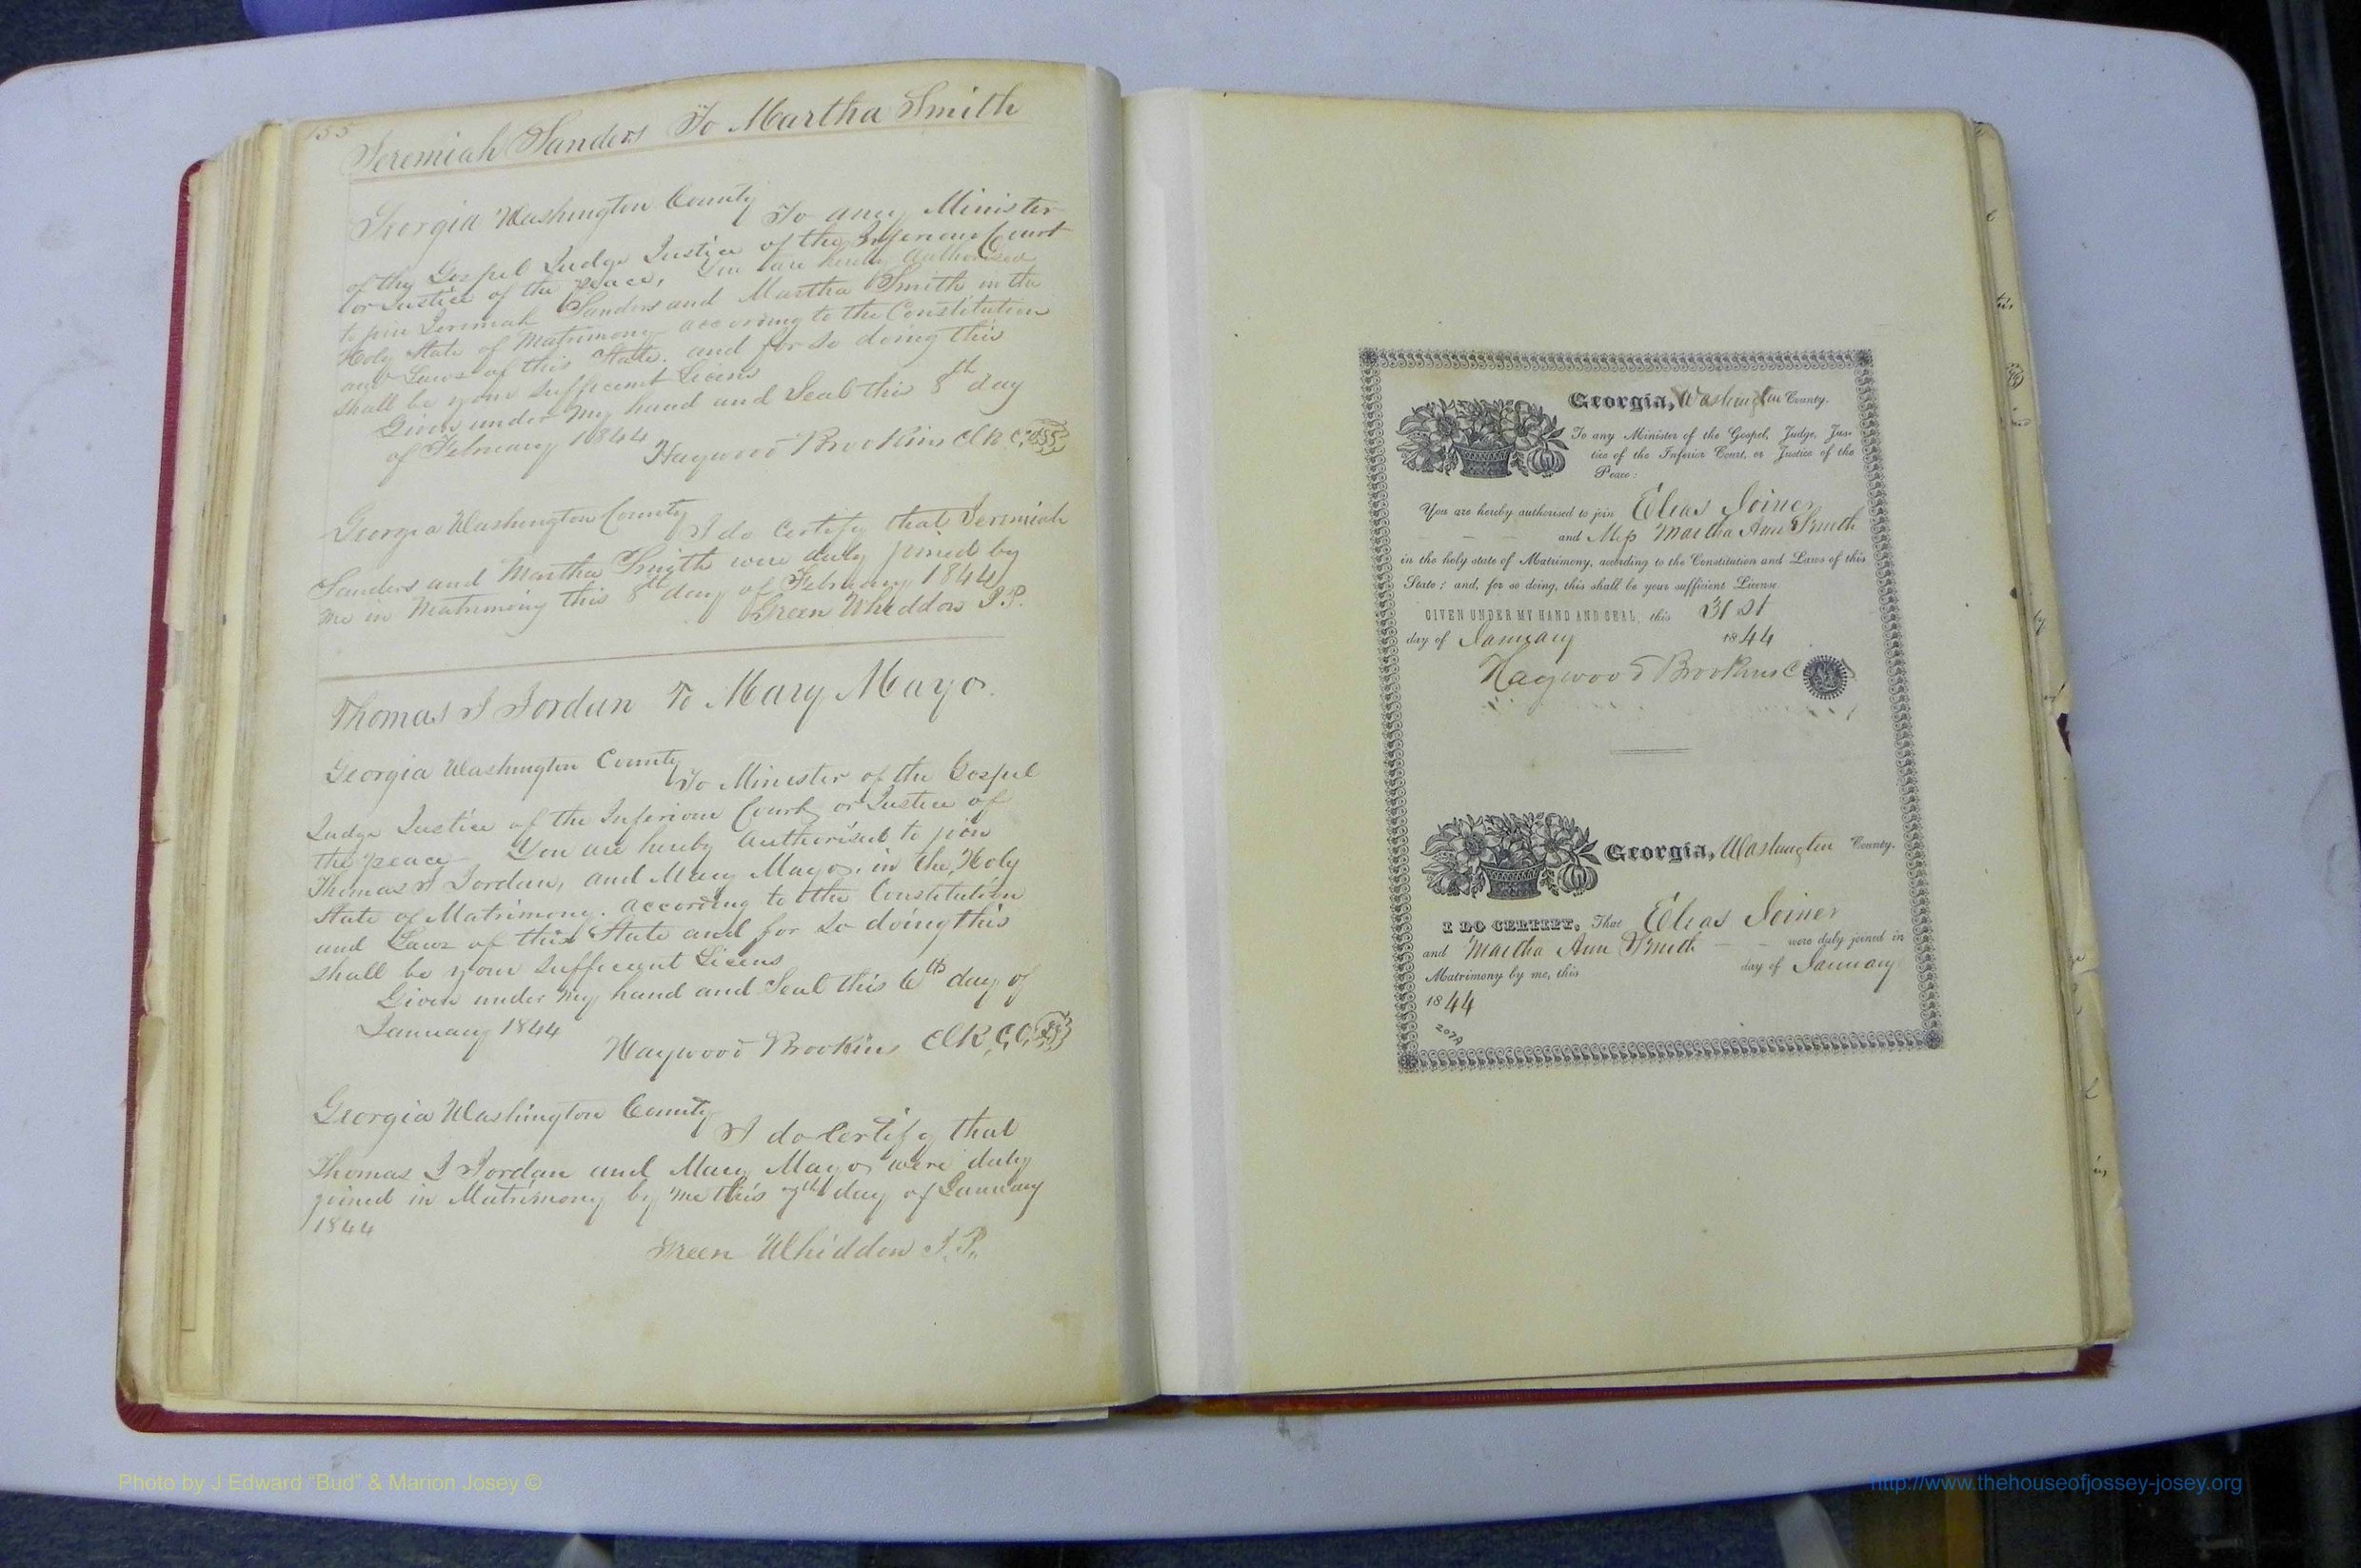 155
Jeremiah Sanders To Martha Smith
Georgia Washington County
To any Minister
of the Gospel Judge Justice of the Inferiour Court
or Justice of the peace, You are hereby Authorised
to join Jeremiah Sanders and Martha Smith in the
Holy State of Matrimony according to the Constitution
and Laws of this State. and for so doing this
shall be your sufficent Licens
Given under my hand and Seal this 8th day
of February 1844
Haywood Brookins Clk C,O
Georgia Washington County
I do Certify that Jeremiah
Sanders and Martha Smith were duly joined by
me in Matrimony this 8th day of February 1844
Green Whiddon J.P.
Thomas J Jordan To Mary Mayo.
Georgia Washington County
To Minister of the Gospel
Judge Justice of the Inferiour Court or Justice of
the peace You are hereby Authorised to join
Thomas J Jordan, and Mary Mayo, in the Holy
State of Matrimony. according to the Constitution
and Laws of this State and for so doing this
shall be your sufficent Licens
Given under my hand and Seal this 6th day of
January 1844
Haywood Brookins Clk C,O,
Georgia Washington County
I do Certify that
Thomas J Jordan and Mary Mayo were duly
joined in Matrimony by me this 7th day of January
1844
Green Whiddon J.P.
Georgia, Washington County.
To any Minister of the Gospel, Judge, Jus-
tice of the Inferior Court, or Justice of the
Peace:
You are hereby authorised to join Elias Joiner
and Miss Martha Ann Smith
in the holy state of Matrimony, according to the Constitution and Laws of this
State; and, for so doing, this shall be your sufficient License
GIVEN UNDER MY HAND AND SEAL, this 31st
day of January 1844
Haywood Brookins C
Georgia, Washington County.
I DO CERTIFY, That Elias Joiner
and Martha Ann Smith were duly joined in
Matrimony by me, this day of January
1844
207A
Photo by J Edward “Bud” & Marion Josey ©
http://www.thehouseofjossey-josey.org